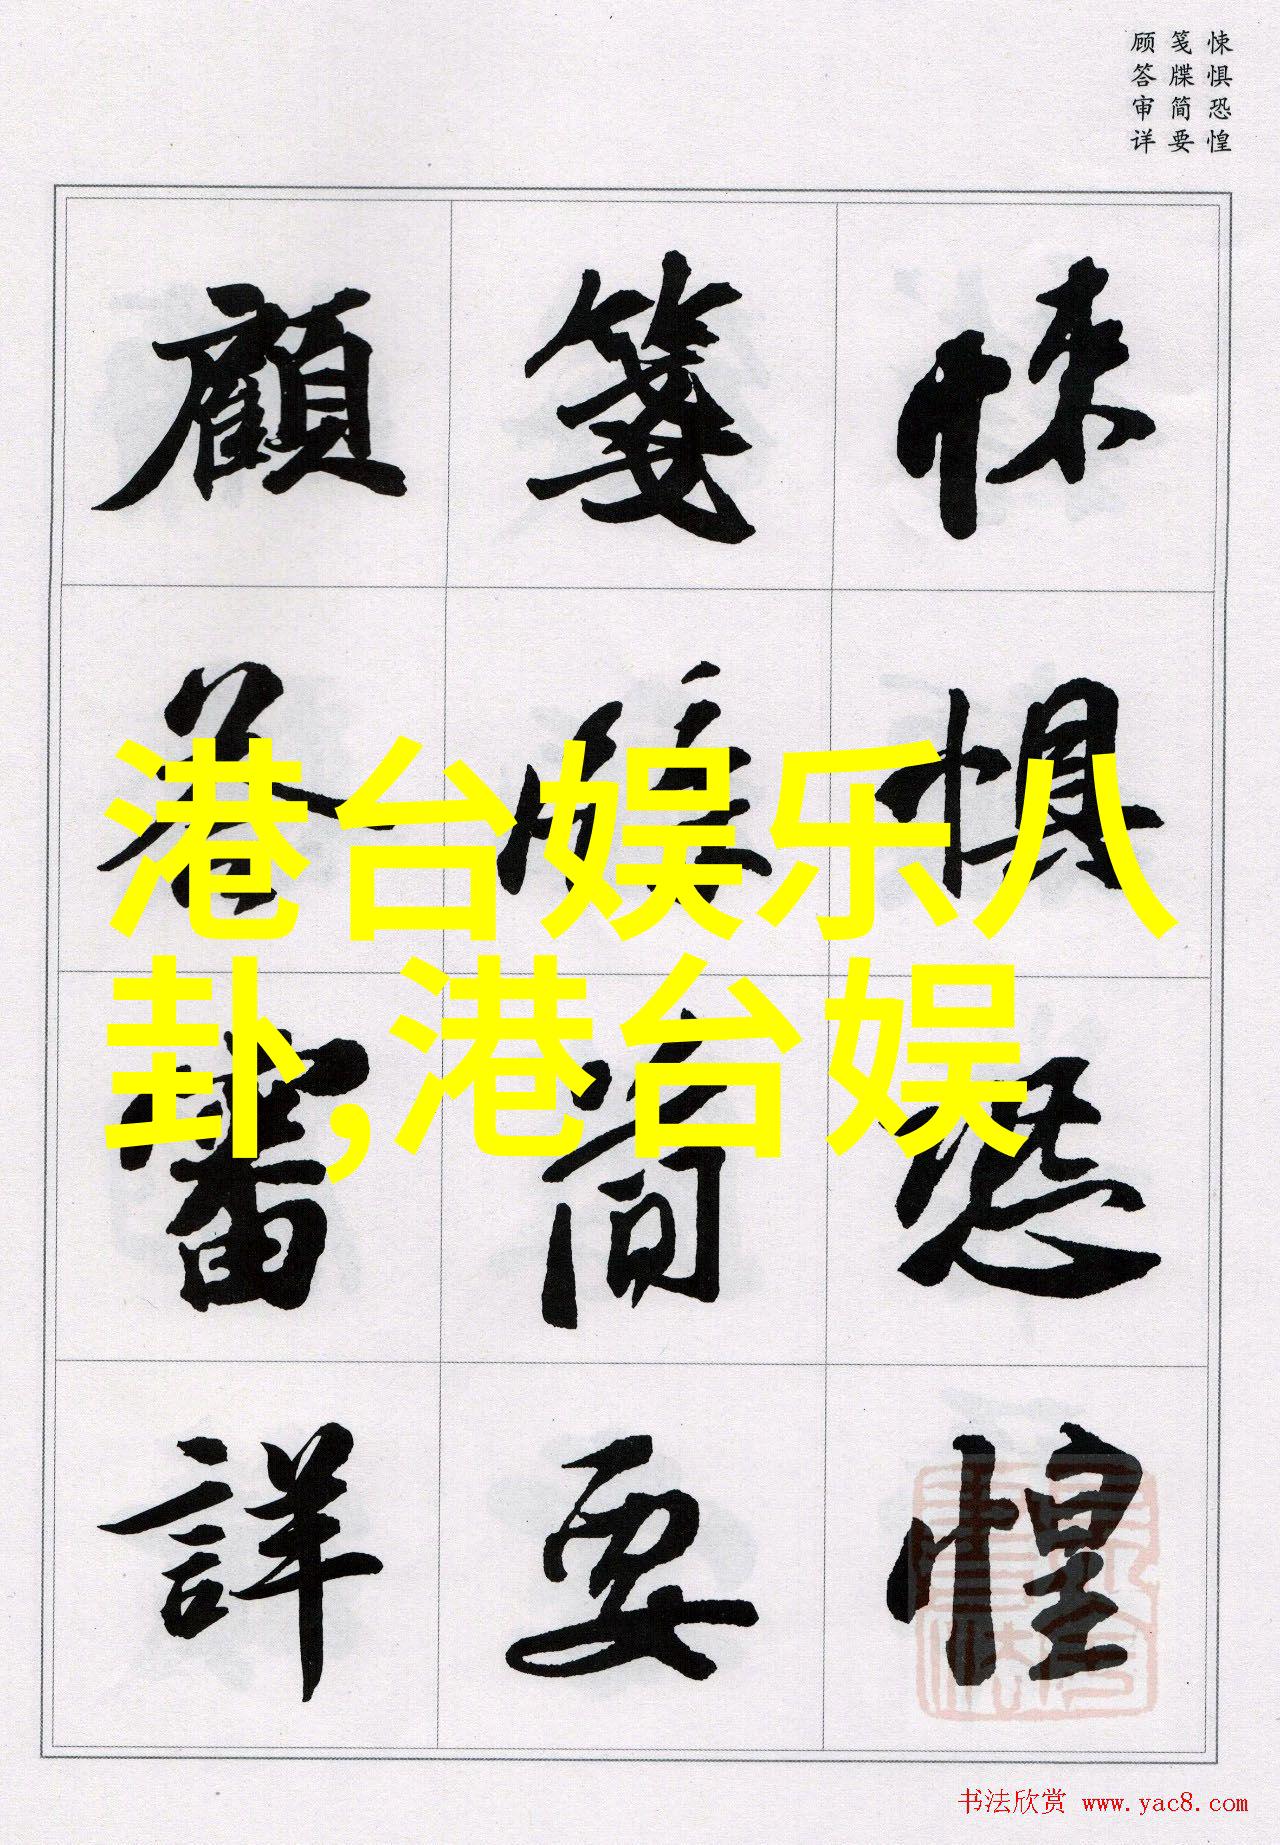 悚惧恐惶
笺牒简要
顾答审详
悚懼恐惶
箋牒简要
顧答審詳
港台娱乐八
卦,港台娱
书法欣赏 www.yac8.com